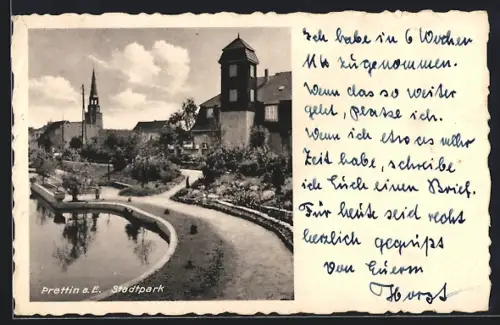 Ich habe in 6 Wochen
zugenommen.
Wenn das so weiter
geht, platze ich.
Wenn ich etwas mehr
Zeit habe, schreibe
ich Euch einen Brief.
Für heute seid recht
herzlich gegrüßt
von Euerm
Horst
Prettin a. E. Stadtpark